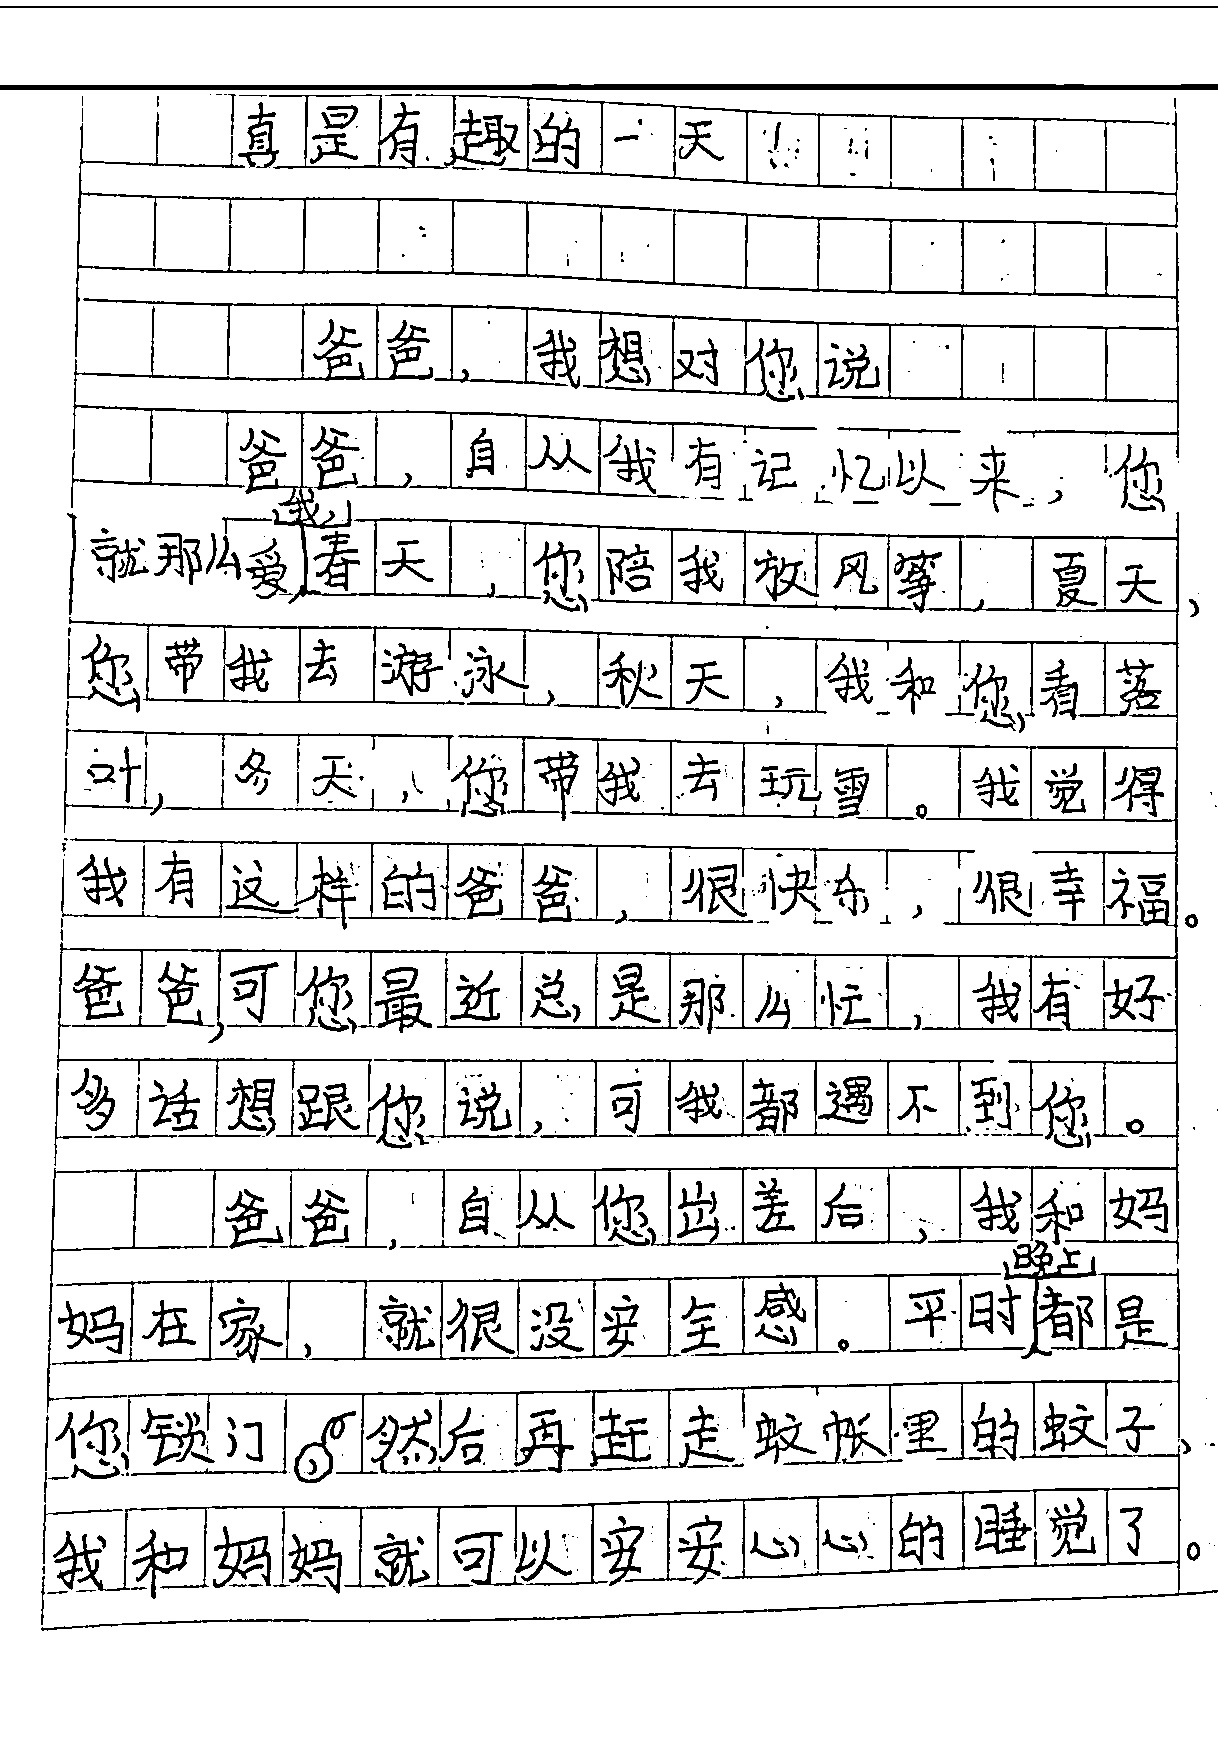 真是有趣的一天！
爸爸，我想对您说
爸爸，自从我有记忆以来，您
就那么爱我，春天，您陪我放风筝，夏天，
您带我去游泳，秋天，我和您看落
叶，冬天，您带我去玩雪。我觉得
我有这样的爸爸，很快乐，很幸福。
爸爸，可您最近总是那么忙，我有好
多话想跟您说，可我都遇不到您。
爸爸，自从您出差后，我和妈
妈在家，就很没安全感。平时晚上都是
您锁门，然后再赶走蚊帐里的蚊子，
我和妈妈就可以安安心心的睡觉了。